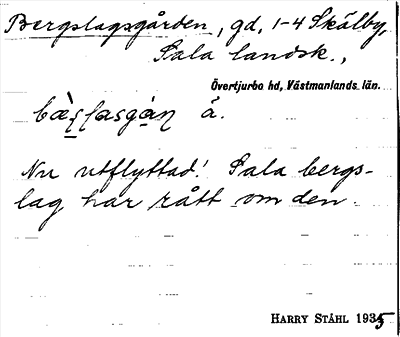 Bergslagsgården, gd, 1-4 Skälby,
Sala landsk.,
Övertjurbo hd, Västmanlands län.
å.
Nu utflyttad! Sala bergs-
lag har rått om den.
HARRY STÅHL 1935